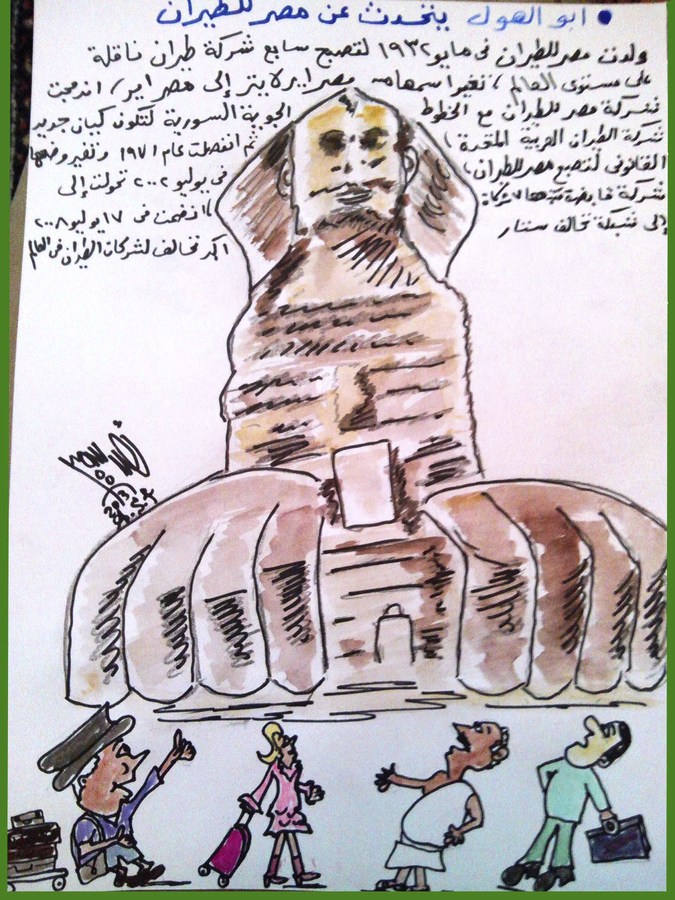 • ابو الهول يتحدث عن مصر للطيران
ولدت مصر للطيران فى مايو ١٩٣٢ لتصبح سابع شركة طيران ناقلة
على مستوى العالم / تغير اسمها من مصر ايرلاينز إلى مصر اير / اندمجت
شركة مصر للطيران مع الخطوط الجوية السورية لتكون كيان جديد
شركة الطيران العربية المتحدة ثم انفصلت عام ١٩٧١ وتغير وضعها
القانونى لتصبح مصر للطيران، فى يوليو ٢٠٠٢ تحولت إلى
شركة قابضة / انضمت فى ١٧ يوليو ٢٠٠٨
إلى شبكة تحالف ستار اكبر تحالف لشركات الطيران فى العالم
٢٠١٣